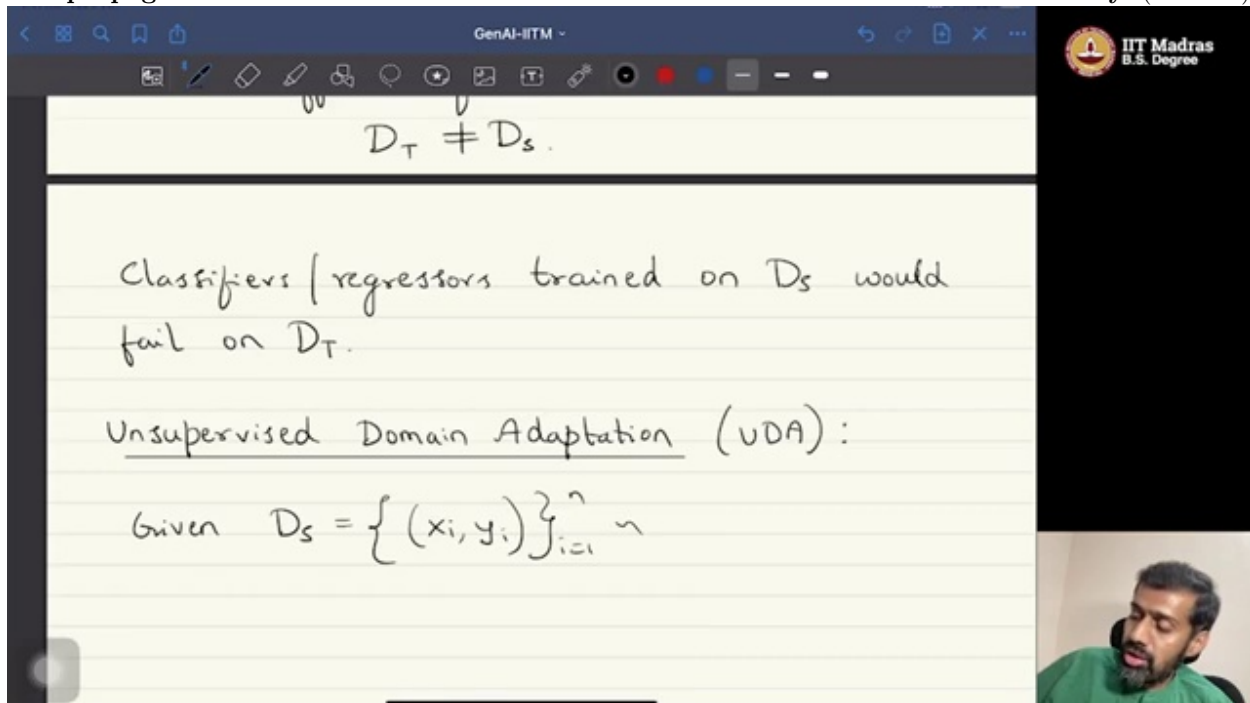 GenAI-IITM
IIT Madras
B.S. Degree
D_T ≠ D_S.
Classifiers / regressors trained on D_S would
fail on D_T.
Unsupervised Domain Adaptation (UDA):
Given D_S = { (x_i, y_i) }_{i=1}^n ~